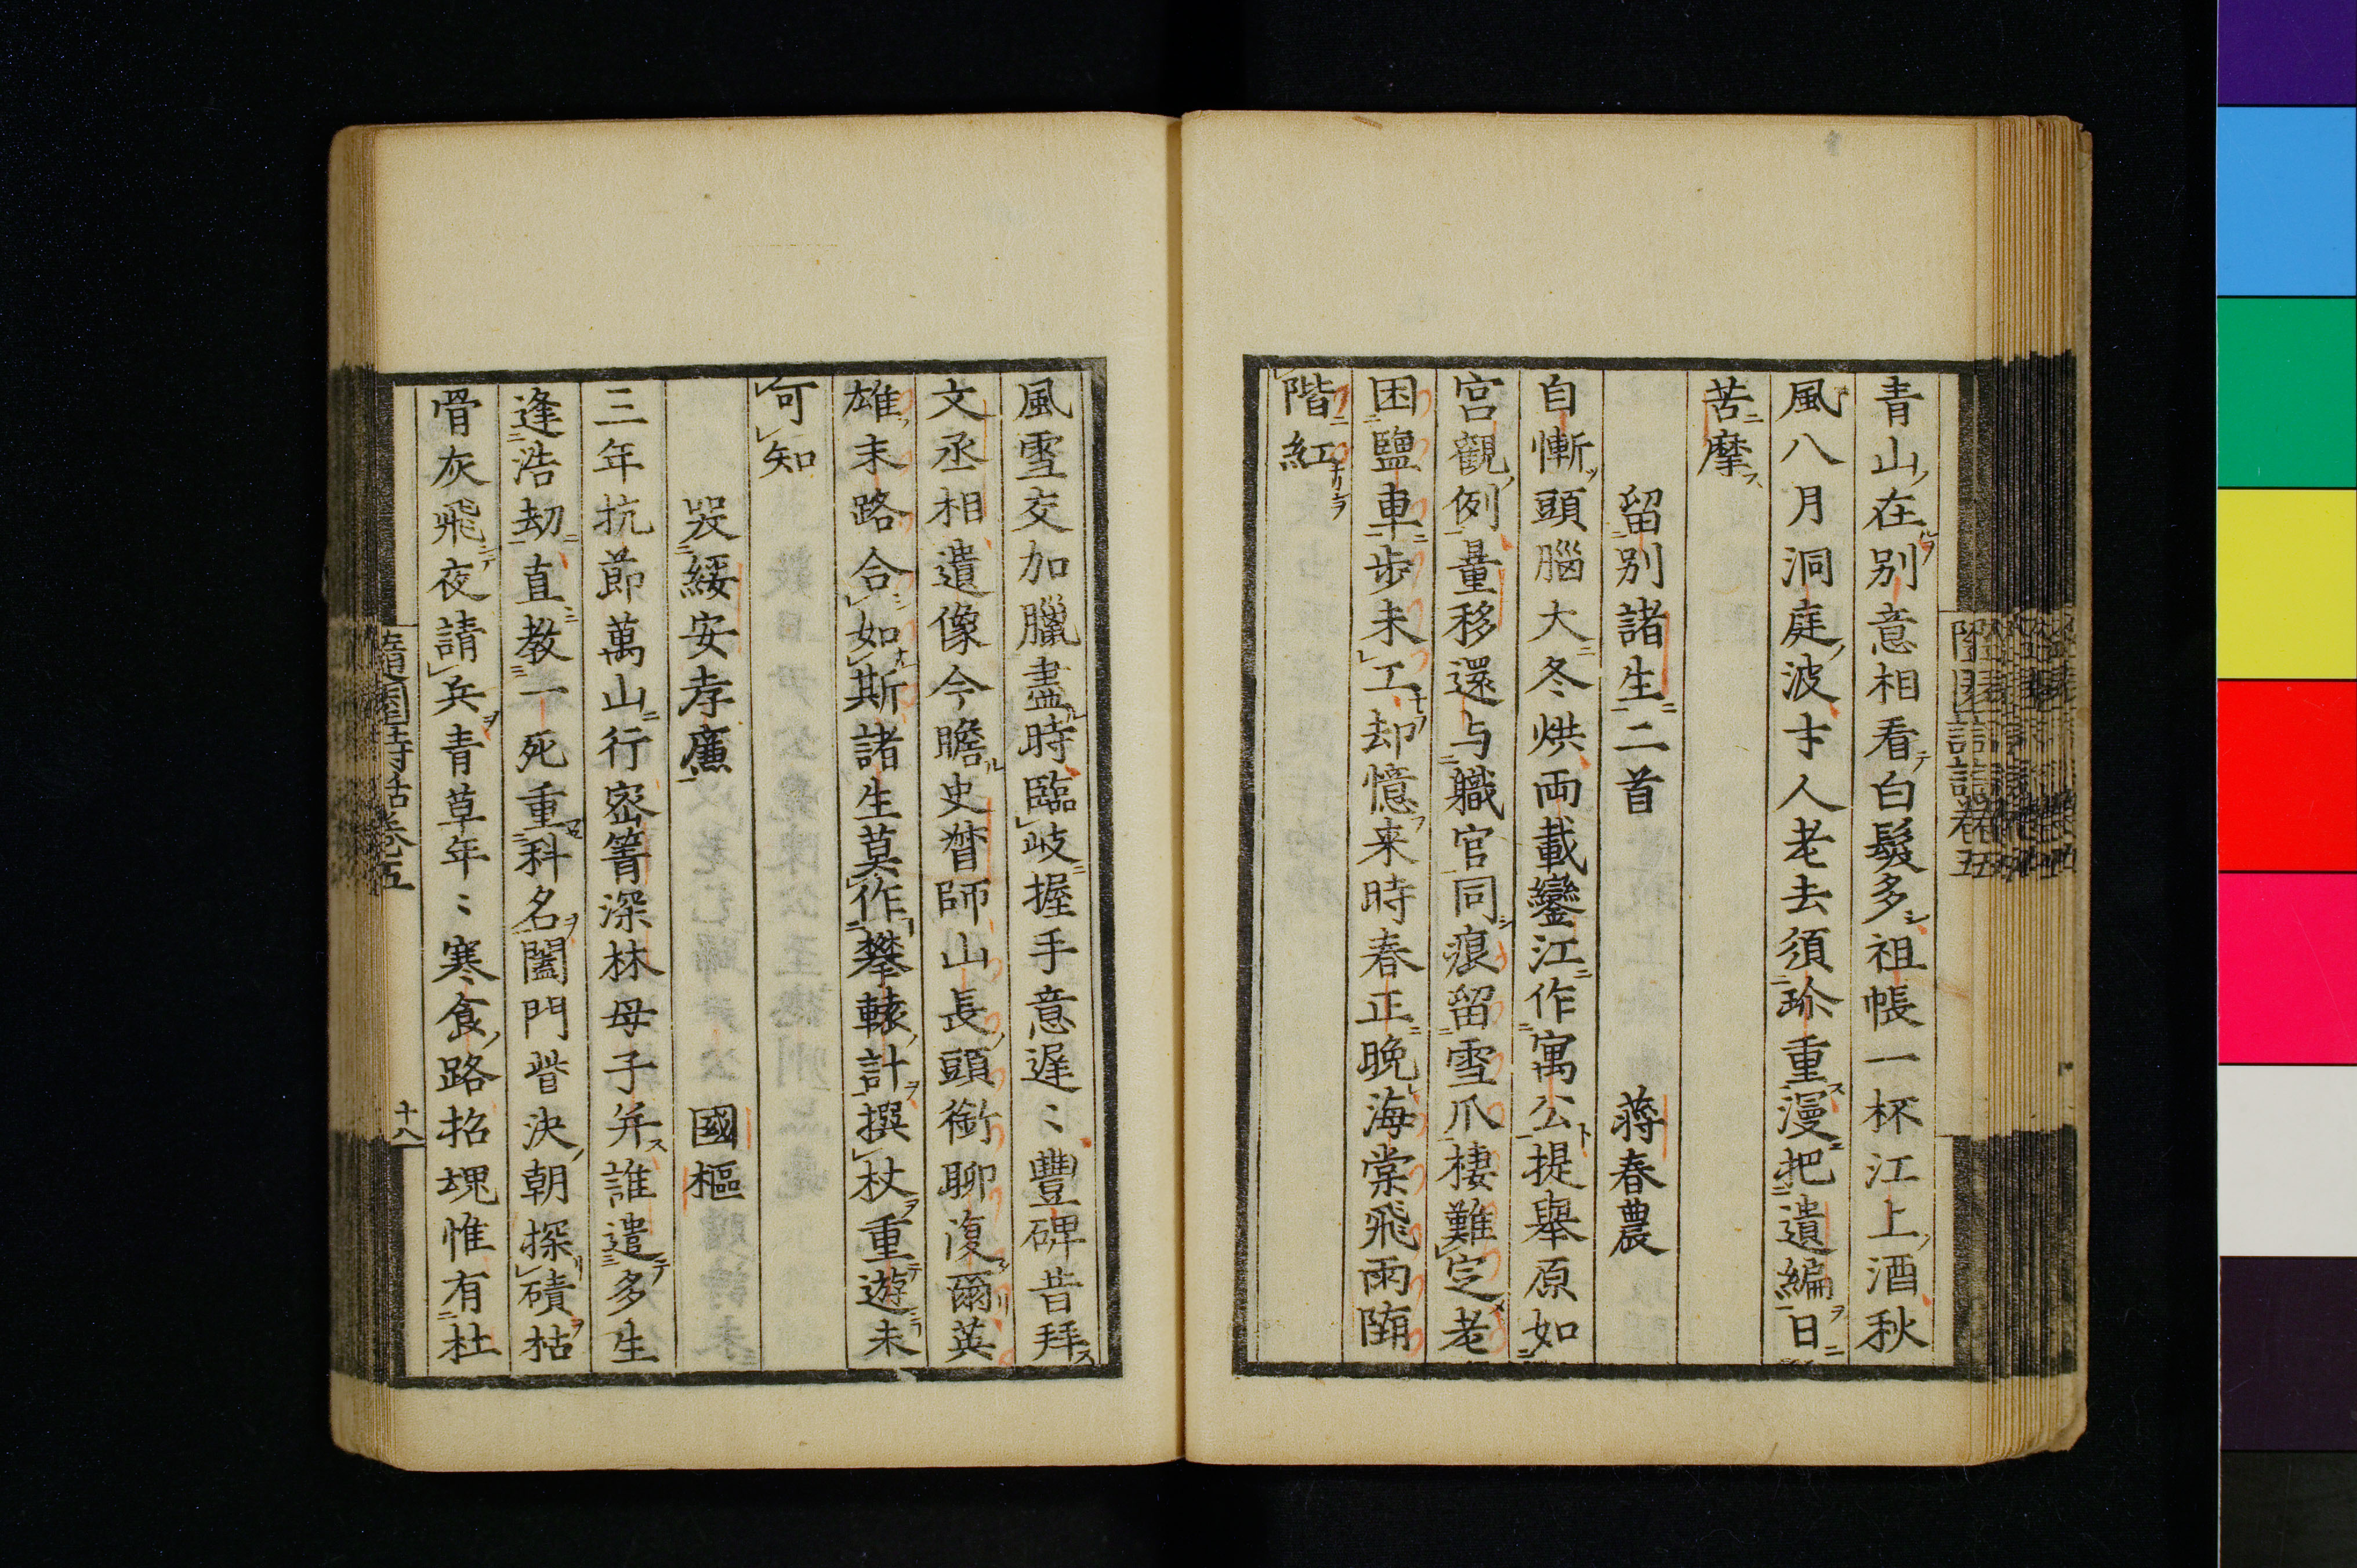 青山在別意相看白髮多祖帳一杯江上酒秋
風八月洞庭波才人老去須珍重漫把遺編日
苦摩
留別諸生二首 蔣春農
自慚頭腦大冬烘両載鑾江作寓公提舉原如
宮觀例量移還与職官同痕留雪爪棲難定老
困鹽車步未工却憶来時春正晚海棠飛雨隋
階紅
風雪交加臘盡時臨岐握手意遲〻豐碑昔拜
文丞相遺像今瞻史督師山長頭銜聊復爾英
雄末路合如斯諸生莫作攀轅計撰杖重遊未
可知
哭綏安孝廉 國樞
三年抗節萬山行密箐深林母子并誰遣多生
逢浩劫直教一死重科名闔門訾決朝探磧枯
骨灰飛夜請兵青草年〻寒食路招魂惟有杜
隨園詩話卷五
十八